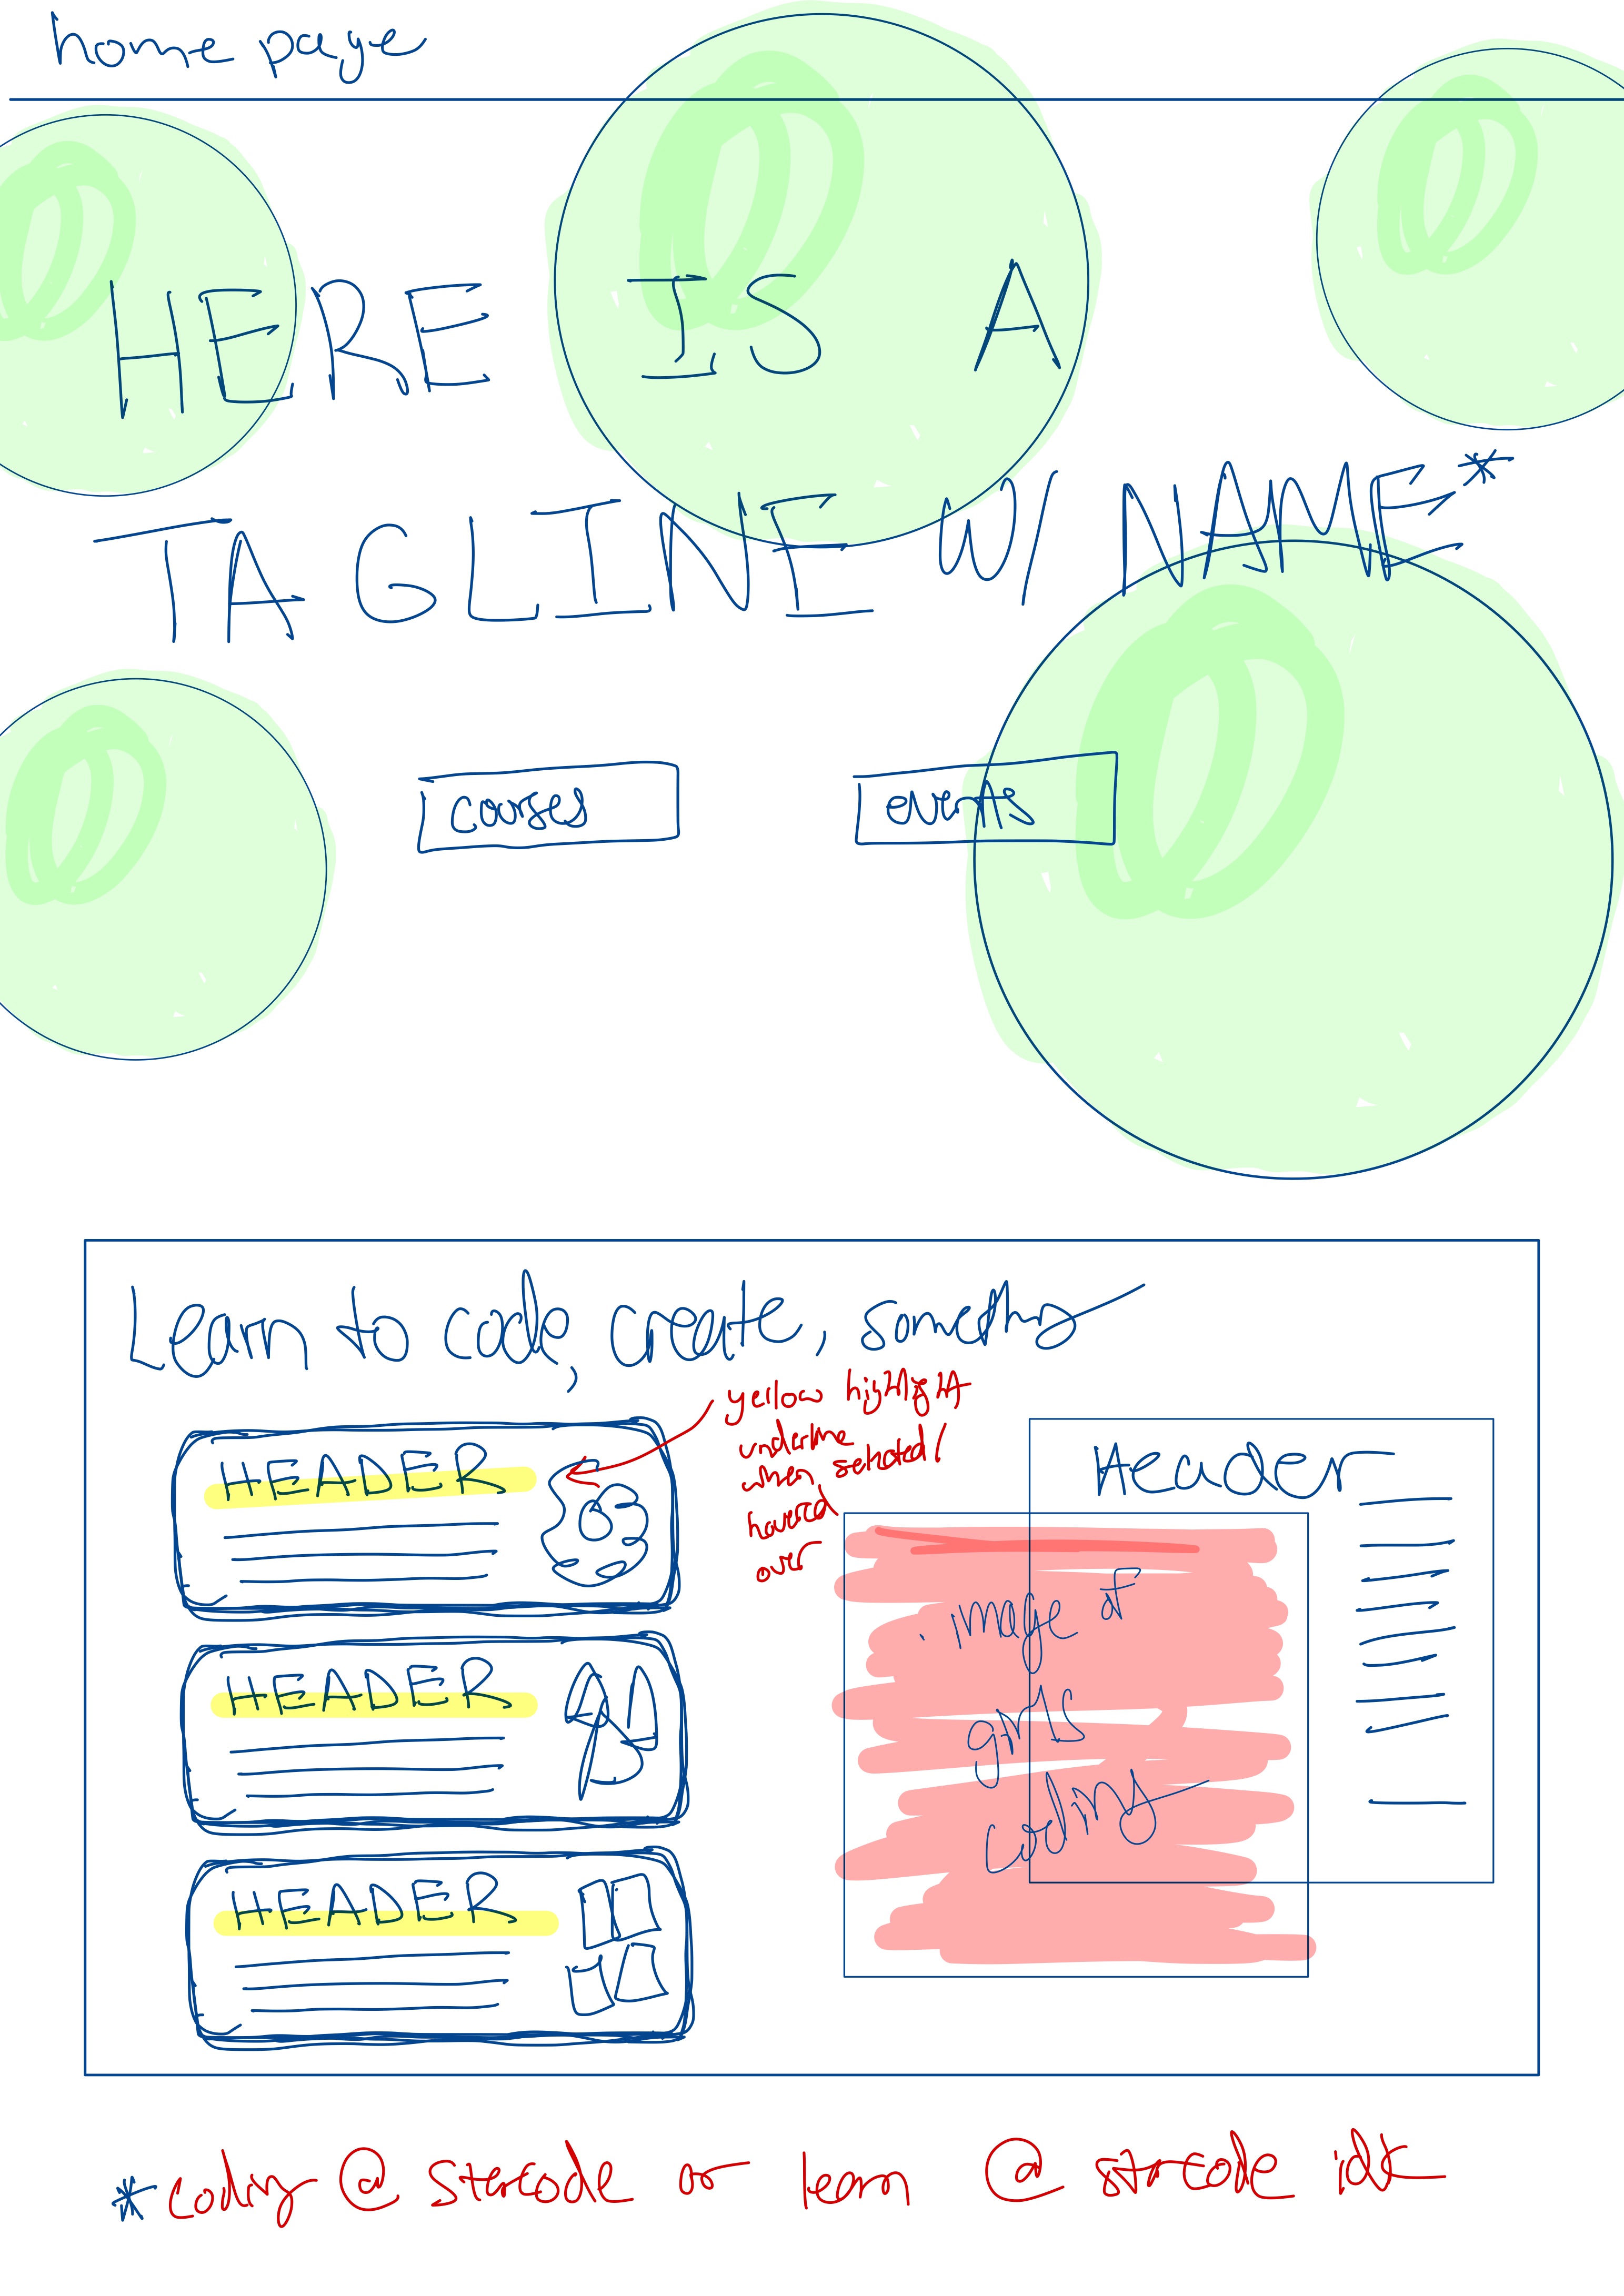 home page
HERE IS A
TAGLINE W/ NAME*
courses
events
Learn to code, create,
yellow highlight
underline
when selected/
hovered
over
HEADER
HEADER
HEADER
Header
image of
girls
coding
* coding @ or learn @ idk